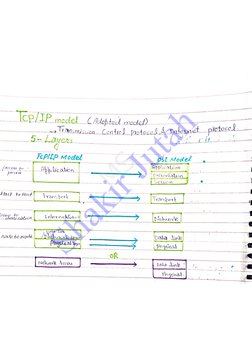 TCP/IP model (Adopted model)
→ Transmission Control protocol & Internet protocol
5-Layers
TCP/IP Model OSI Model
process to process Application Application
Presentation
Session
Host to Host Transport Transport
Internet Network
Node to Node Data Link
Physical Physical
OR
Network Access Data Link
Physical
Shakir Jutah